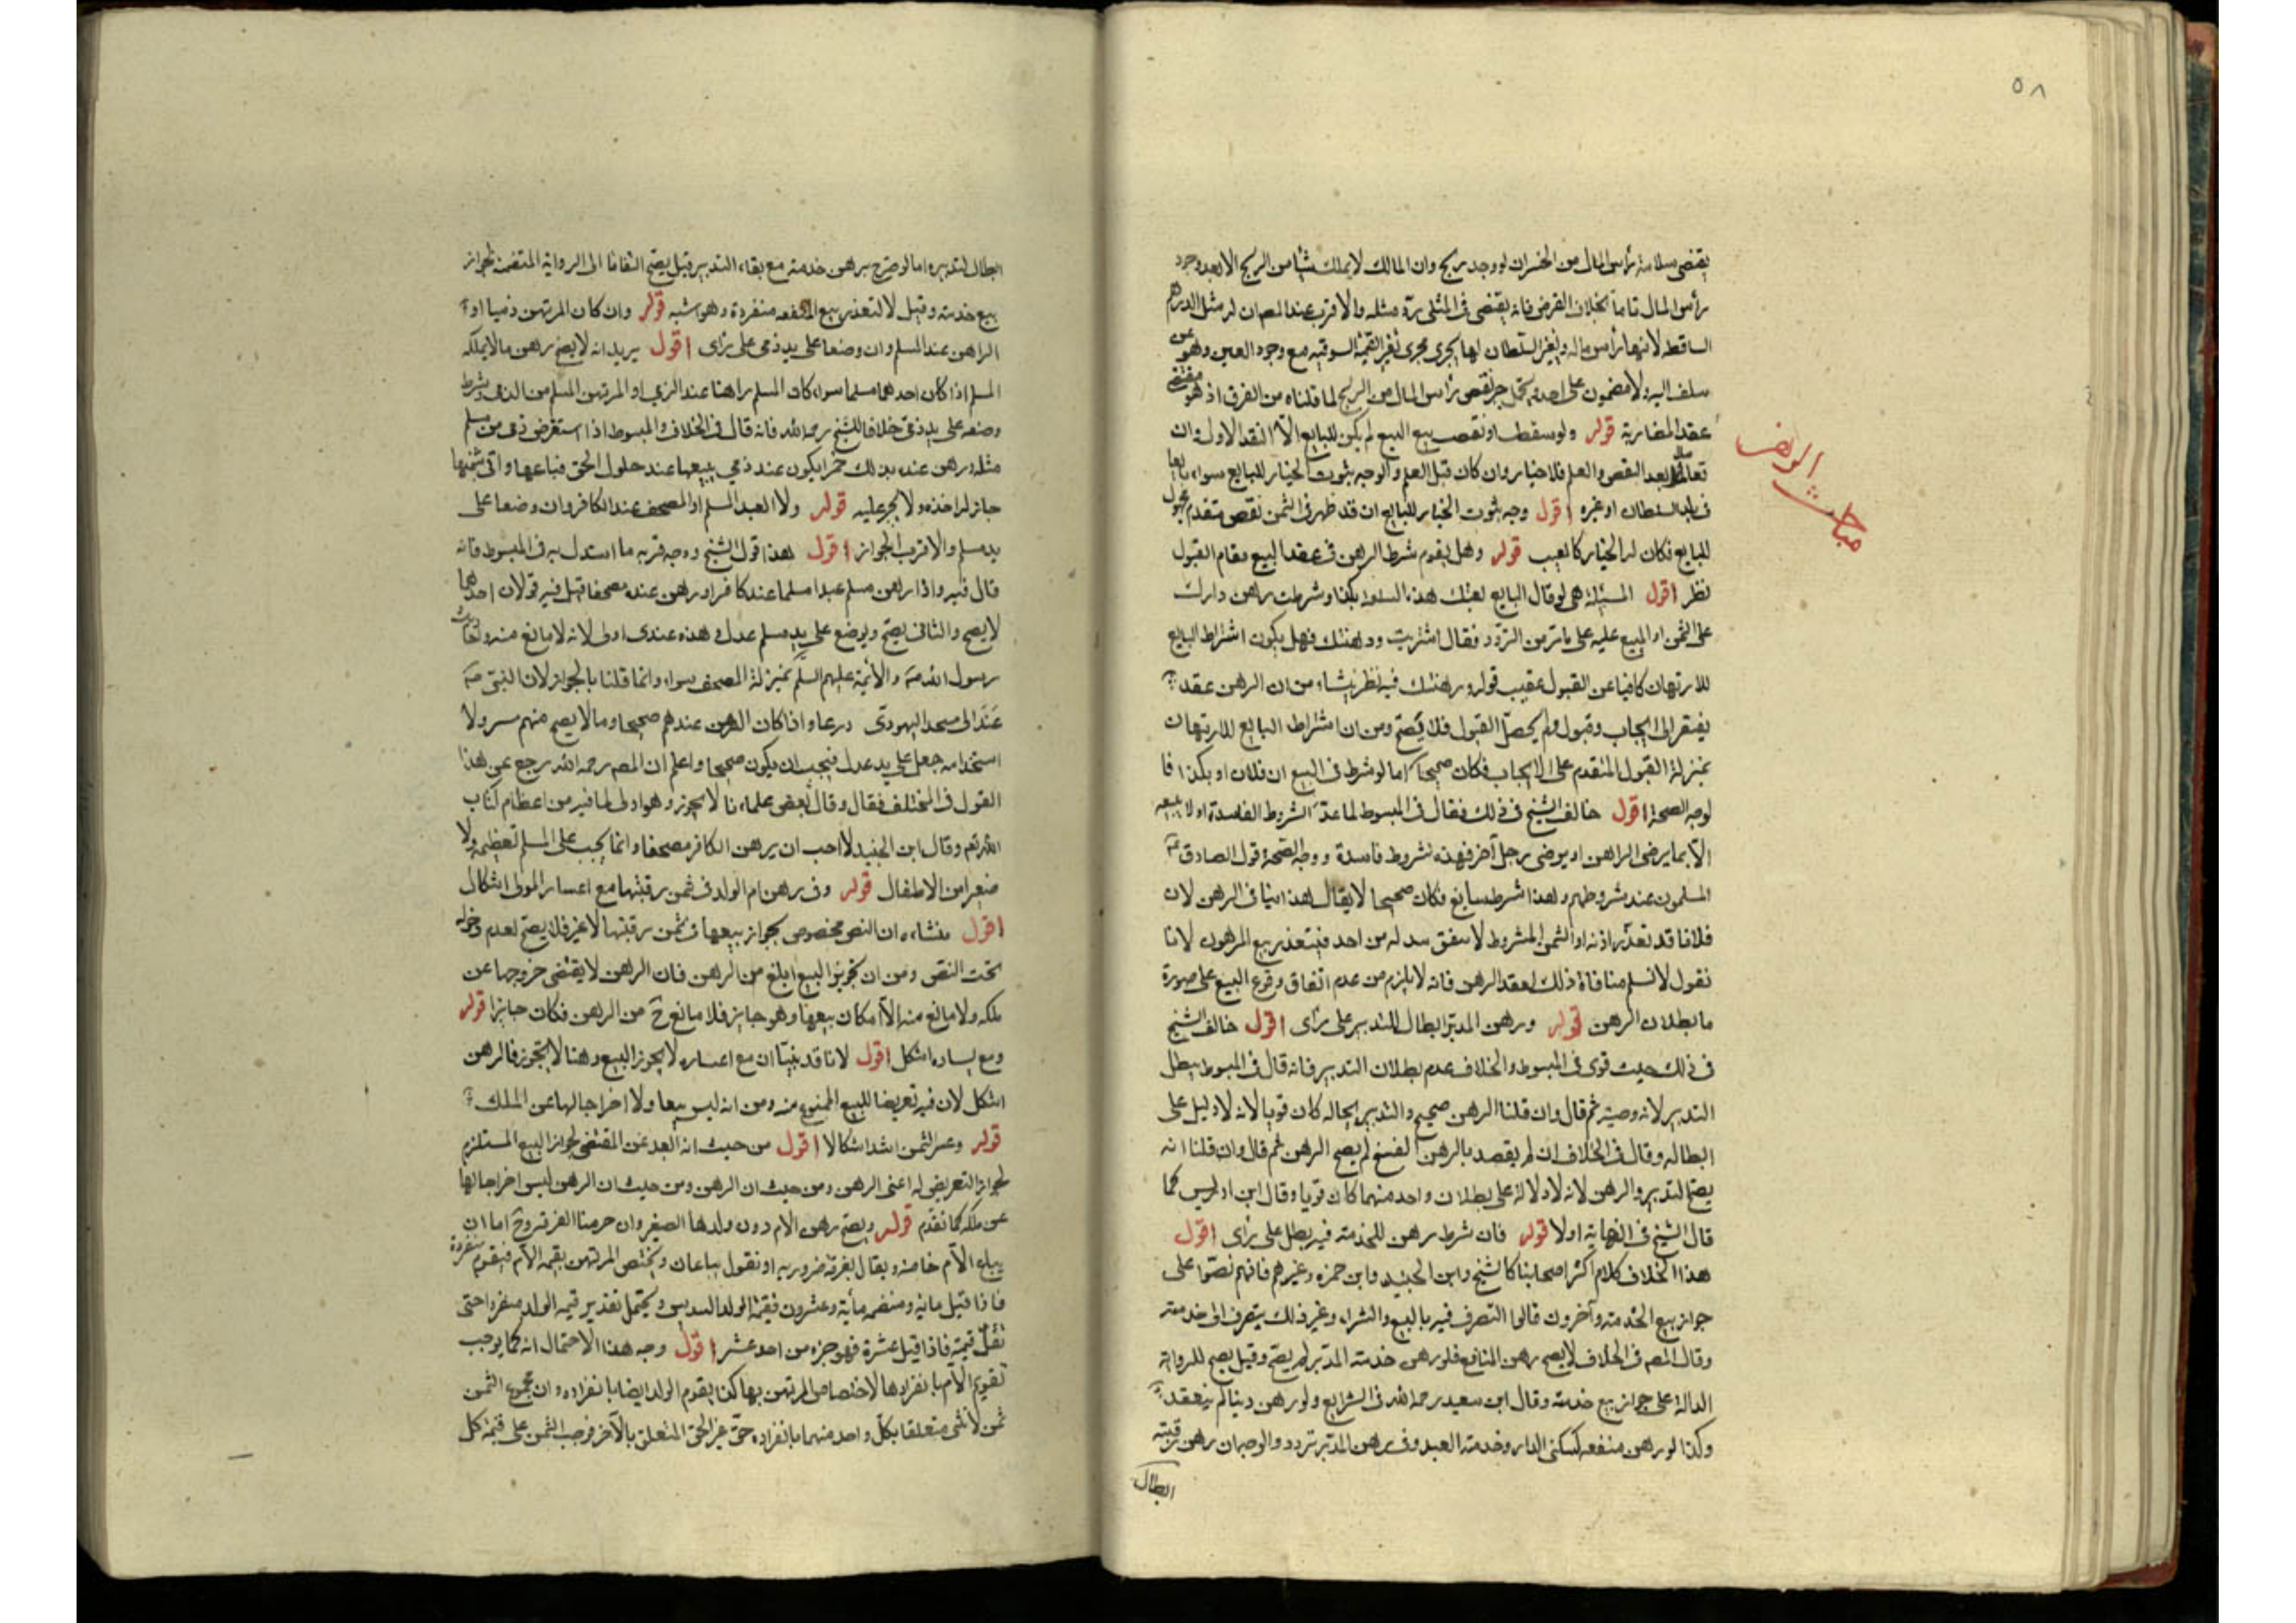 ٥٨
يقتضى سلامة رأس المال من الخسران لو وجد ربح وان المالك لا يملك شيئا من الربح الا بعد وجود
رأس المال تاما بخلاف القرض فانه يقتضى فى المثلى رد مثله والاقرب عند المص ان له مثل الدراهم
الساقطة لانها رأس ماله وتغير السلطان لها يجرى مجرى تغير القيمة السوقية مع وجود العين وهو
عقد المضاربة قوله ولو سقط او نقص بيع البيع لم يكن للبايع الا النقد الاول وان
تعاملا بعد النقص والعلم فلا خيار وان كان قبل العلم فالوجه ثبوت الخيار للبايع سواء تبايعا
فى بلد السلطان او غيره اقول وجه ثبوت الخيار للبايع ان قد ظهر فى الثمن نقص متقدم مجهول
للبايع فكان له الخيار كالعيب قوله وهل يقوم شرط الرهن فى عقد البيع مقام القبول
نظر اقول المسئلة هى لو قال البايع بعتك هذه السلعة بكذا وشرطت رهن دارك
على الثمن او المبيع عليه على ما تر من التردد فقال اشتريت ورهنتك فهل يكون اشتراط البايع
للارتهان كافيا عن القبول عقيب قوله ورهنتك فيه نظر ينشاء من ان الرهن عقد
يفتقر الى ايجاب وقبول ولم يحصل القبول فلا يصح ومن ان اشتراط البايع للارتهان
بمنزلة القبول المتقدم على الايجاب فكان صحيحا كما لو شرط فى البيع
لوجه الصحة اقول خالف الشيخ فى ذلك فقال فى المبسوط لما عد الشروط الفاسدة اولا يبيعه
الا بما يرضى الراهن او يرضى رجل آخر فهذه شروط فاسدة ووجه الصحة قول الصادق
المسلمون عند شروطهم وهذا شرط سايغ فكان صحيحا لا يقال هذا ينافى الرهن لان
فلانا قد تعذر اذنه او الثمن المشروط لا يتفق بذله من احد فيتعذر بيع المرهون لانا
نقول لا نسلم منافاة ذلك لعقد الرهن فانه لا يلزم من عدم اتفاق وقوع البيع على صورة
ما بطلان الرهن قوله ورهن المدبر ابطال للتدبير على رأى اقول خالف الشيخ
فى ذلك حيث قوى فى المبسوط والخلاف عدم بطلان التدبير فانه قال فى المبسوط يبطل
التدبير لانه وصية ثم قال وان قلنا الرهن صحيح والتدبير بحاله كان قويا لانه لا دليل على
ابطاله وقال فى الخلاف ان لم يقصد بالرهن الفسخ لم يصح الرهن ثم قال وان قلنا انه
يصح التدبير والرهن لانه لا دلالة على بطلان واحد منهما كان قويا وقال ابن ادريس كما
قال الشيخ فى النهاية اولا قوله فان شرط رهن للخدمة فيه بطل على رأى اقول
هذا الخلاف كلام اكثر اصحابنا كالشيخ وابن الجنيد وابن حمزه وغيرهم فانهم نصوا على
جواز بيع الخدمة وآخرون قالوا التصرف فيه بالبيع والشراء وغير ذلك يتصرف الى خدمته
وقال المص فى الخلاف لا يصح رهن المنافع فلو رهن خدمة المدبر لم يصح وقيل يصح للرواية
الدالة على جواز بيع خدمته وقال ابن سعيد رحمه الله فى الشرايع ولو رهن دينا لم ينعقد
وكذا لو رهن منفعة كسكنى الدار وخدمة العبد وفى رهن المدبر تردد والوجه ان رهن رقبته
ابطال
مباحث الرهن
ابطال لتدبيره اما لو صرح برهن خدمته مع بقاء التدبير قيل يصح التفاتا الى الرواية المتضمنة لجواز
بيع خدمته وقيل لا لتعذر بيع المنفعه منفردة وهو اشبه قوله وان كان المرتهن ذميا او
الراهن عند المسلم وان وضعا على يد ذمى على رأى اقول يريد انه لا يصح رهن ما لا يملكه
المسلم اذا كان احدهما مسلما سواء كان المسلم راهنا عند الذمى او المرتهن المسلم من الذمى وشرط
وضعه على يد ذمى خلافا للشيخ رحمه الله فانه قال فى الخلاف والمبسوط اذا استقرض ذمى من مسلم
مثله ورهن عنده بذلك خمرا يكون عند ذمى يبيعها عند حلول الحق فباعها واتى بثمنها
جاز له اخذه ولا يجبر عليه قوله ولا العبد المسلم او المصحف عند الكافر وان وضعا على
يد مسلم والاقرب الجواز اقول هذا قول الشيخ ووجه قربه ما استدل به فى المبسوط فانه
قال فيه واذا رهن مسلم عبدا مسلما عند كافر او رهن عنده مصحفا قيل فيه قولان احدهما
لا يصح والثانى يصح ويوضع على يد مسلم عدل وهذه عندى اولى لانه لا مانع منه واحاديث
رسول الله ص والائمة عليهم السلم بمنزلة المصحف سواء وانما قلنا بالجواز لان النبى ص
درعا واذا كان الرهن عندهم صحيحا وما لا يصح منهم مسه ولا
استخدامه جعل على يد عدل فيجب ان يكون صحيحا واعلم ان المص رحمه الله رجع عن هذا
القول فى المختلف فقال وقال بعض علماءنا لا يجوز وهو اولى لما فيه من اعظام كتاب
الله تعم وقال ابن الجنيد لا احب ان يرهن الكافر مصحفا وانما يجب على المسلم تعظيمه ولا
صغيرا من الاطفال قوله وفى رهن ام الولد فى ثمن رقبتها مع اعسار المولى اشكال
اقول منشاءه ان النص مخصوص بجواز بيعها فى ثمن رقبتها لا غير فلا يصح لعدم دخوله
تحت النص ومن ان تجويز البيع ابلغ من الرهن فان الرهن لا يقتضى خروجها عن
ملكه ولا مانع منه الا امكان بيعها وهو جايز فلا مانع ح من الرهن فكان جايزا قوله
ومع يساره اشكل اقول لانا قد بينا ان مع اعساره لا يجوز البيع وهنا لا يجوز فالرهن
اشكل لان فيه تعريضا للبيع الممنوع منه ومن انه ليس بيعا ولا اخراجا لها عن الملك
قوله وغير الثمن اشد اشكالا اقول من حيث انه ابعد عن المقتضى لجواز البيع المستلزم
لجواز التعريض له اعنى الرهن ومن حيث ان الرهن ومن حيث ان الرهن ليس اخراجا لها
عن ملكه كما تقدم قوله ويصح رهن الام دون ولدها الصغير وان حرمنا التفرقة وح اما ان
يباع الام خاصة ويقال تفرقة ضرورية او نقول يباعان ويختص المرتهن بقيمة الام فيقوم منفردة
فاذا قيل مائة ومنضمه مأية وعشرون فقيمة الولد السدس ويحتمل تقدير قيمة الولد منفردا حتى
تقل قيمته فاذا قيل عشرة فهو جزء من احد عشر اقول وجه هذا الاحتمال انه كما يوجب
تقويم الام بانفرادها لاختصاص المرتهن بها كذا يقوم الولد ايضا بانفراده وان مجموع الثمن
متعلقا بكل واحد منهما بانفراده حتى غير الحق المتعلق بالآخر فوجب الثمن على قيمة كل